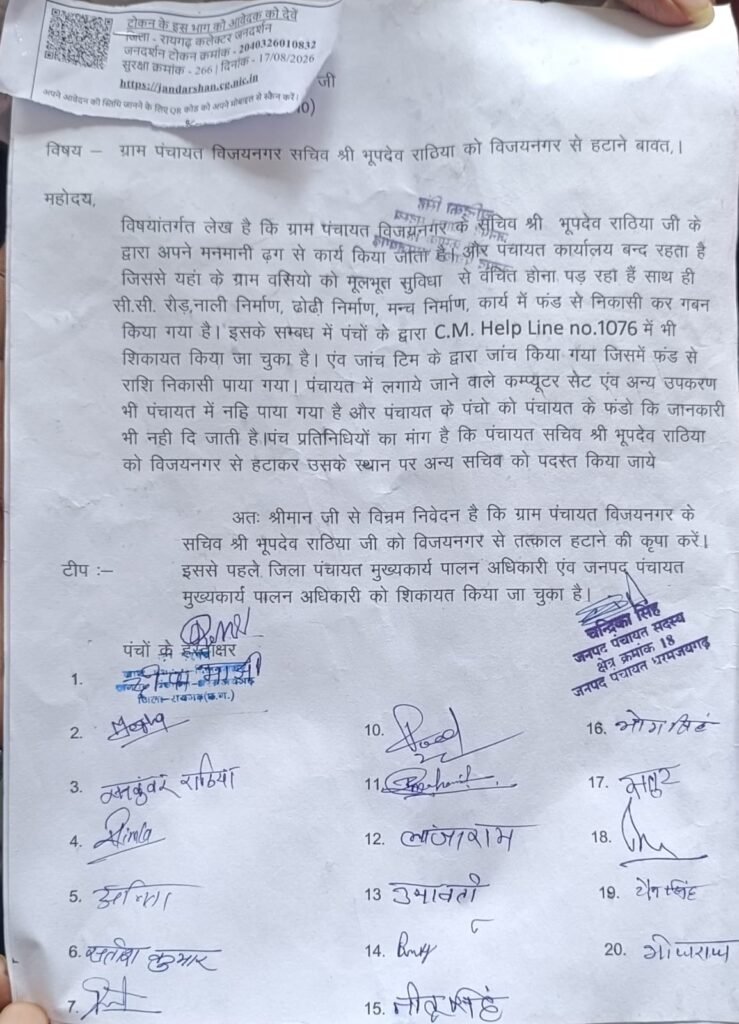 टोकन के इस भाग को आवेदक को देवें
जिला - रायगढ़ कलेक्टर जनदर्शन
जनदर्शन टोकन क्रमांक - 2040326010832
सुरक्षा क्रमांक - 266 | दिनांक - 17/08/2026
https://jandarshan.cg.nic.in
अपने आवेदन की स्थिति जानने के लिए QR कोड को अपने मोबाइल से स्कैन करें।
जी
विषय – ग्राम पंचायत विजयनगर सचिव श्री भूपदेव राठिया को विजयनगर से हटाने बावत,।
महोदय,
विषयांतर्गत लेख है कि ग्राम पंचायत विजयनगर के सचिव श्री भूपदेव राठिया जी के
द्वारा अपने मनमानी ढ़ग से कार्य किया जाता है। और पंचायत कार्यालय बन्द रहता है
जिससे यहां के ग्राम वसियो को मूलभूत सुविधा से वंचित होना पड़ रहा हैं साथ ही
सी.सी. रोड़,नाली निर्माण, ढोढी निर्माण, मन्च निर्माण, कार्य में फंड से निकासी कर गबन
किया गया है। इसके सम्बध में पंचों के द्वारा C.M. Help Line no.1076 में भी
शिकायत किया जा चुका है। एंव जांच टिम के द्वारा जांच किया गया जिसमें फंड से
राशि निकासी पाया गया। पंचायत में लगाये जाने वाले कम्प्यूटर सेट एंव अन्य उपकरण
भीं पंचायत में नहि पाया गया है और पंचायत के पंचो को पंचायत के फंडो कि जानकारी
भी नही दि जाती है।पंच प्रतिनिधियों का मांग है कि पंचायत सचिव श्री भूपदेव राठिया
को विजयनगर से हटाकर उसके स्थान पर अन्य सचिव को पदस्त किया जाये
अतः श्रीमान जी से विन्रम निवेदन है कि ग्राम पंचायत विजयनगर के
सचिव श्री भूपदेव राठिया जी को विजयनगर से तत्काल हटाने की कृपा करें।
टीप :– इससे पहले जिला पंचायत मुख्यकार्य पालन अधिकारी एंव जनपद पंचायत
मुख्यकार्य पालन अधिकारी को शिकायत किया जा चुका है।
चन्द्रिका सिंह
जनपद पंचायत सदस्य
क्षेत्र क्रमांक 18
जनपद पंचायत धरमजयगढ़
पंचों के हस्ताक्षर
1.
जिला-रायगढ़(छ.ग.)
2.
3. राठिया
4.
5.
6. कुमार
7.
10.
11.
12.
13
14.
15.
16. भोग सिंह
17.
18.
19.
20.